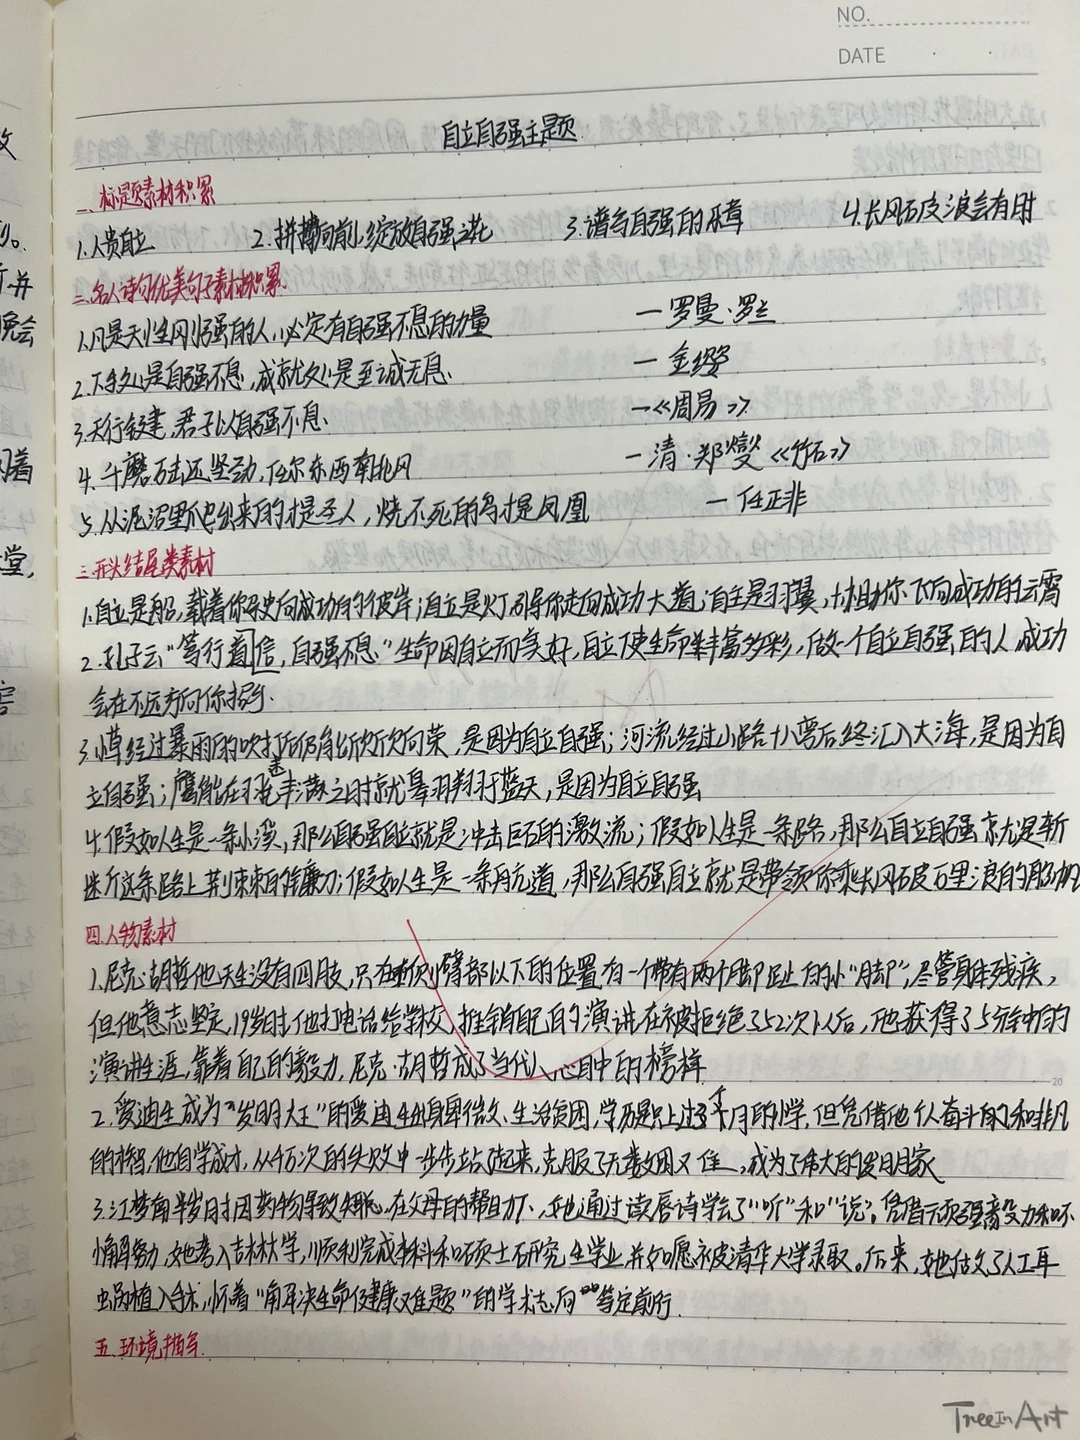 NO.
DATE
自立自强主题
一、标题素材积累
1.人贵自立 2.拼搏向前,绽放自强之花 3.谱写自强的乐章 4.长风破浪会有时
二.名人诗句优美句子素材积累
1.凡是天性刚强的人,必定有自强不息的力量 —罗曼·罗兰
2.下手处是自强不息,成就处是至诚无息. —金缨
3.天行健,君子以自强不息. —《周易》
4.千磨万击还坚劲,任尔东西南北风 —清·郑燮《竹石》
5.从泥沼里爬出来的才是圣人,烧不死的鸟才是凤凰 —任正非
三.开头结尾类素材
1.自立是船,载着你驶向成功的彼岸;自立是灯,引导你走向成功大道;自主是羽翼,扶助你飞向成功的云霄
2.孔子云"笃行道信,自强不息."生命因自立而美好,自立使生命丰富多彩,做一个自立自强的人 成功
会在不远方向你招手.
3.小草经过暴雨的吹打后仍能欣欣向荣,是因为自立自强;河流经过山路十八弯后终汇入大海,是因为自
立自强;鹰能在羽毛丰满之时就翱翔于蓝天,是因为自立自强
4.假如人生是一条小溪,那么自强自立就是冲击巨石的激流;假如人生是一条路,那么自立自强就是斩
断这条路上荆棘的镰刀;假如人生是一条航道,那么自强自立就是带领你乘长风破万里浪的船帆
四.人物素材
1.尼克·胡哲他天生没有四肢,只在左侧臀部以下的位置有一个带有两个脚趾的小"脚",尽管身体残疾,
但他意志坚定,19岁时他打电话给学校,推销自己的演讲.在被拒绝了52次以后,他获得了5分钟的
演讲生涯,靠着自己的毅力,尼克·胡哲成了当代人心目中的榜样
2.爱迪生成为"发明大王"的爱迪生出身卑微、生活贫困,学历是只上过3个月的小学,但凭借他个人奋斗的和非凡
的才智,他自学成才,从千万次的失败中一步步站了起来,克服了无数困难,成为了伟大的发明家
3.江梦南半岁时因药物导致失聪.在父母的帮助下,她通过读唇语学会了"听"和"说"。凭借顽强毅力和不
懈努力,她考入吉林大学,顺利完成本科和硕士研究生学业,并如愿被清华大学录取。后来,她做了人工耳
蜗植入手术,怀着"解决生命健康难题"的学术志向笃定前行.
五.环境描写
20
Tree In Art